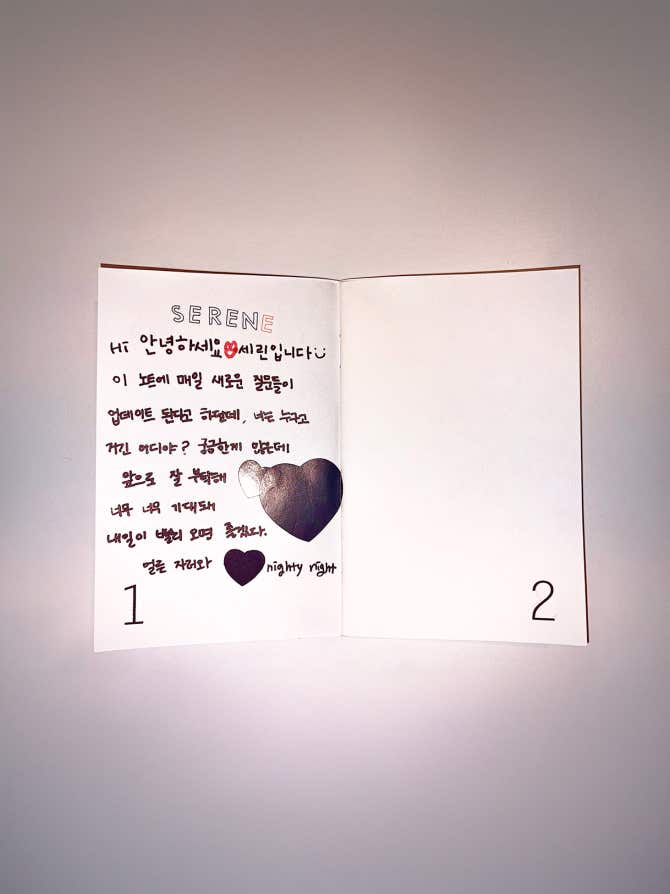 SERENE
Hi 안녕하세요 세린입니다
이 노트에 매일 새로운 질문들이
업데이트 된다고 하던데, 너는 누구고
거긴 어디야? 궁금한게 많은데
앞으로 잘 부탁해
너무 너무 기대돼
내일이 빨리 오면 좋겠다.
얼른 자러와 nighty night
1
2